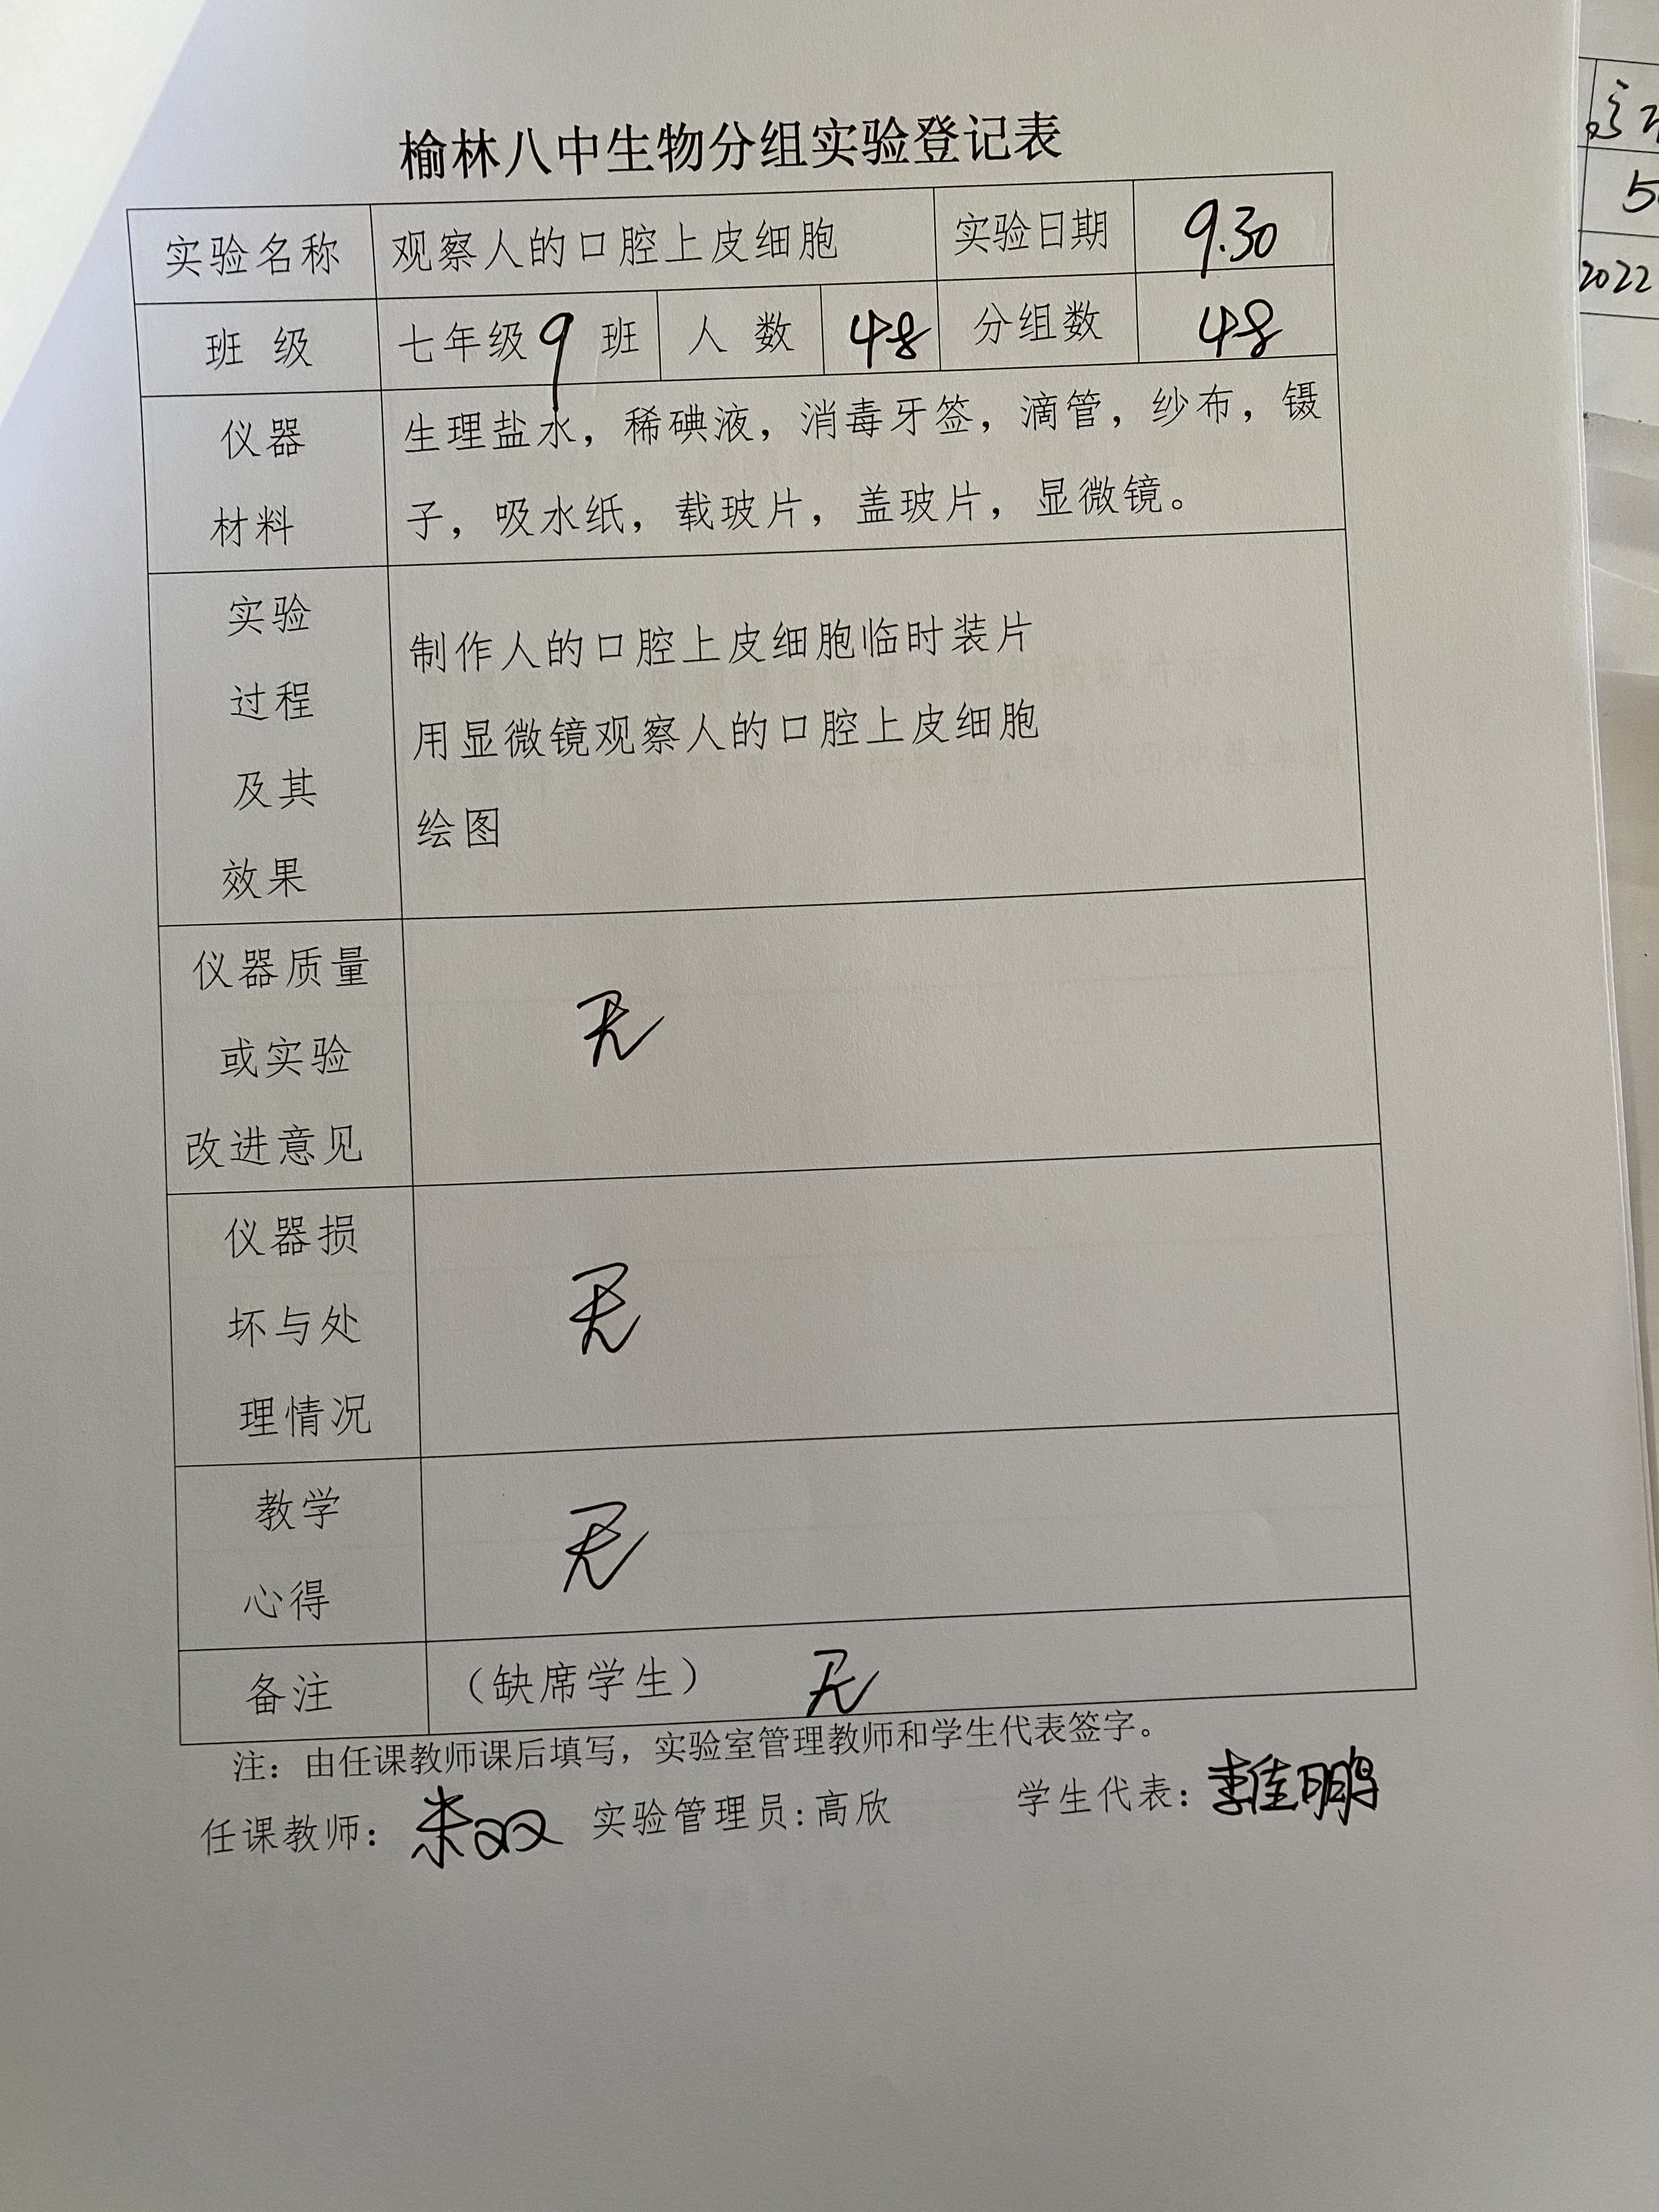 榆林八中生物分组实验登记表
实验名称 观察人的口腔上皮细胞 实验日期 9.30
班 级 七年级9班 人 数 48 分组数 48
仪器
材料
生理盐水，稀碘液，消毒牙签，滴管，纱布，镊
子，吸水纸，载玻片，盖玻片，显微镜。
实验
过程
及其
效果
制作人的口腔上皮细胞临时装片
用显微镜观察人的口腔上皮细胞
绘图
仪器质量
或实验
改进意见
无
仪器损
坏与处
理情况
无
教学
心得
无
备注 （缺席学生） 无
注：由任课教师课后填写，实验室管理教师和学生代表签字。
任课教师：朱双 实验管理员:高欣 学生代表：李佳鹏
2022